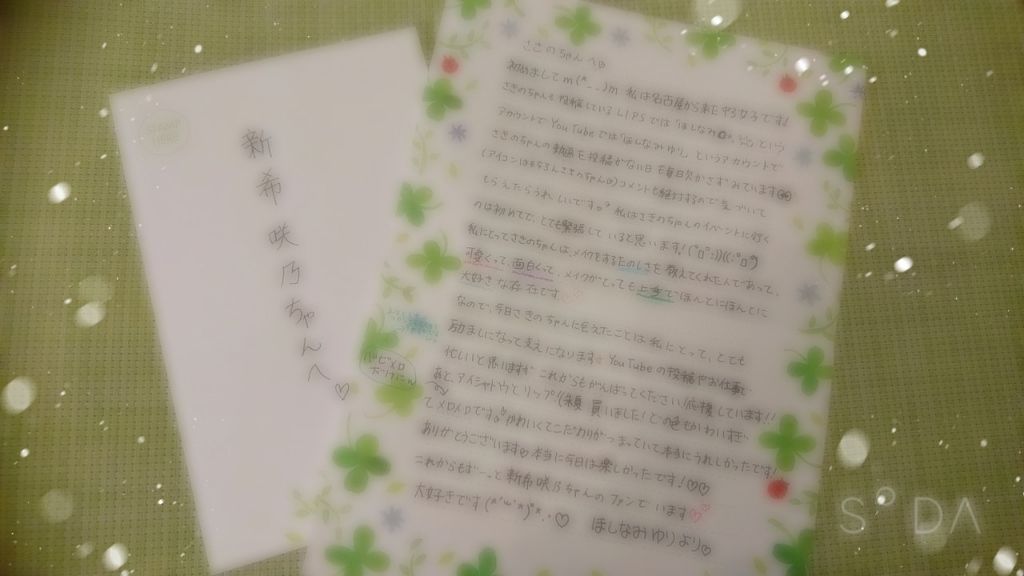 新希咲乃ちゃんへ♡
さきのちゃんへ♡
初めましてm(*_ _)m 私は名古屋から来た 女子です!
さきのちゃんも投稿しているLIPSでは「ほしなみ という
アカウントでYouTubeでは「ほしなみゆり」というアカウントで
さきのちゃんの動画を投稿がない日も毎日欠かさずみています
(アイコンはもちろんさきのちゃん)コメントも絶対するので気づいて
もらえたらうれしいです。私はさきのちゃんのイベントに行く
のは初めてで、とても緊張していると思います!
私にとってさきのちゃんは、メイクをするたのしさを教えてくれた人であって、
可愛くって、面白くって、メイクがとっても上手でほんとにほんとに
大好きな存在です♡
なので、今日さきのちゃんに会えたことは私にとって、とても
励ましになって支えになります。YouTubeの投稿やお仕事
忙しいと思います これからもがんばってください!応援しています!!
あと、アイシャドウとリップ( 買いました!)どの色もかわいすぎ
てメロメロです。かわいくてこだわりがつまっていて本当にうれしかったです!
ありがとうございます♡本当に今日は楽しかったです!♡♡
これからもずーっと新希咲乃ちゃんのファンでいます♡
大好きです(*'ω'*)*..♡ ほしなみゆりより♡
SODA